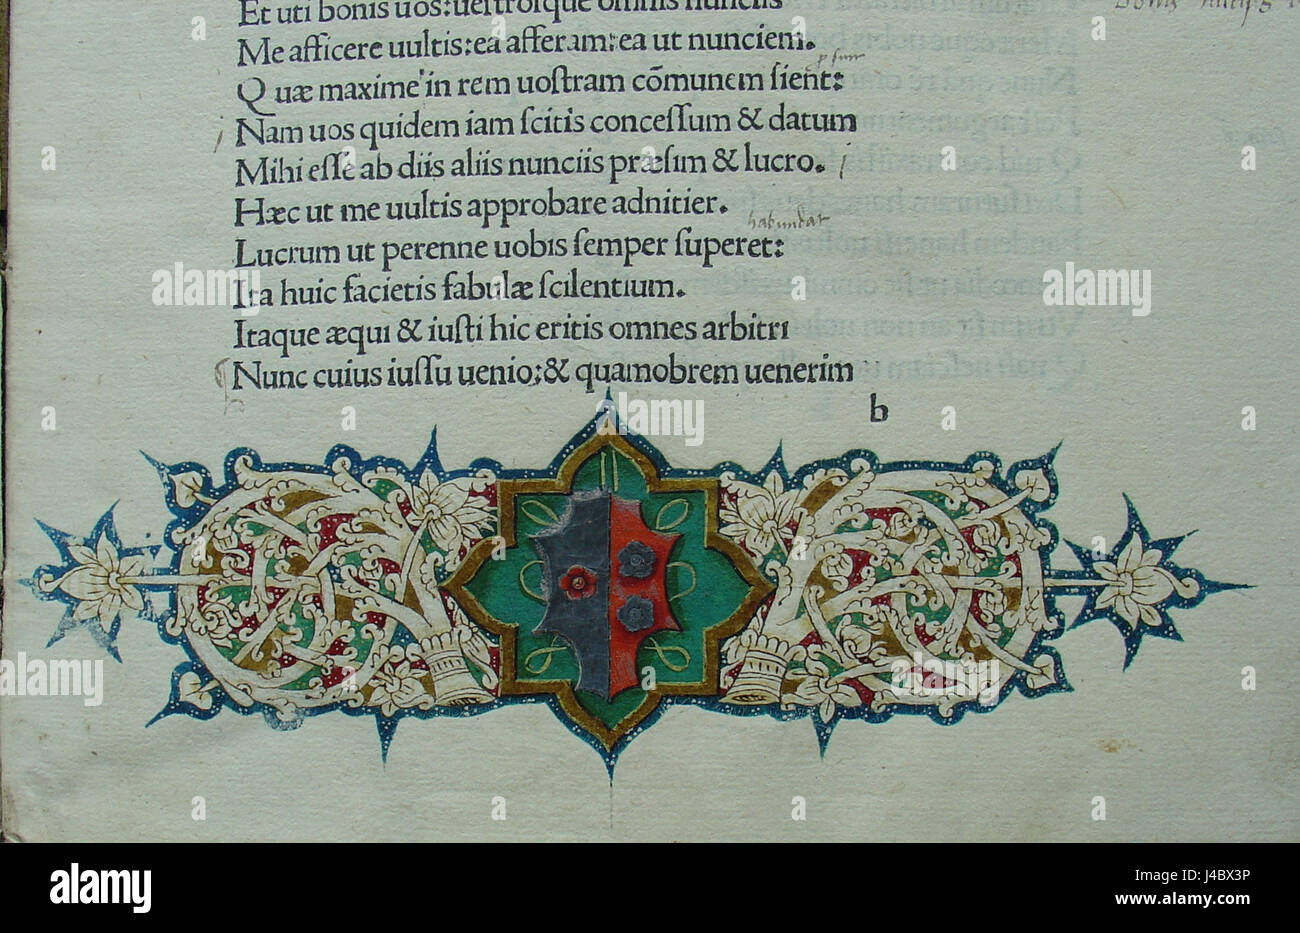 Et uti bonis uos: ueſtroſque omnis nunciis
Me afficere uultis: ea afferam: ea ut nunciem.
p ſunt
Quæ maxime in rem uoſtram cōmunem ſient:
Nam uos quidem iam ſcitis conceſſum & datum
Mihi eſſe ab diis aliis nunciis præſim & lucro.
Hæc ut me uultis approbare adnitier.
habundat
Lucrum ut perenne uobis ſemper ſuperet:
Ita huic facietis fabulæ ſcilentium.
Itaque æqui & iuſti hic eritis omnes arbitri
Nunc cuius iuſſu uenio: & quamobrem uenerim
b
alamy
Image ID: J4BX3P
www.alamy.com